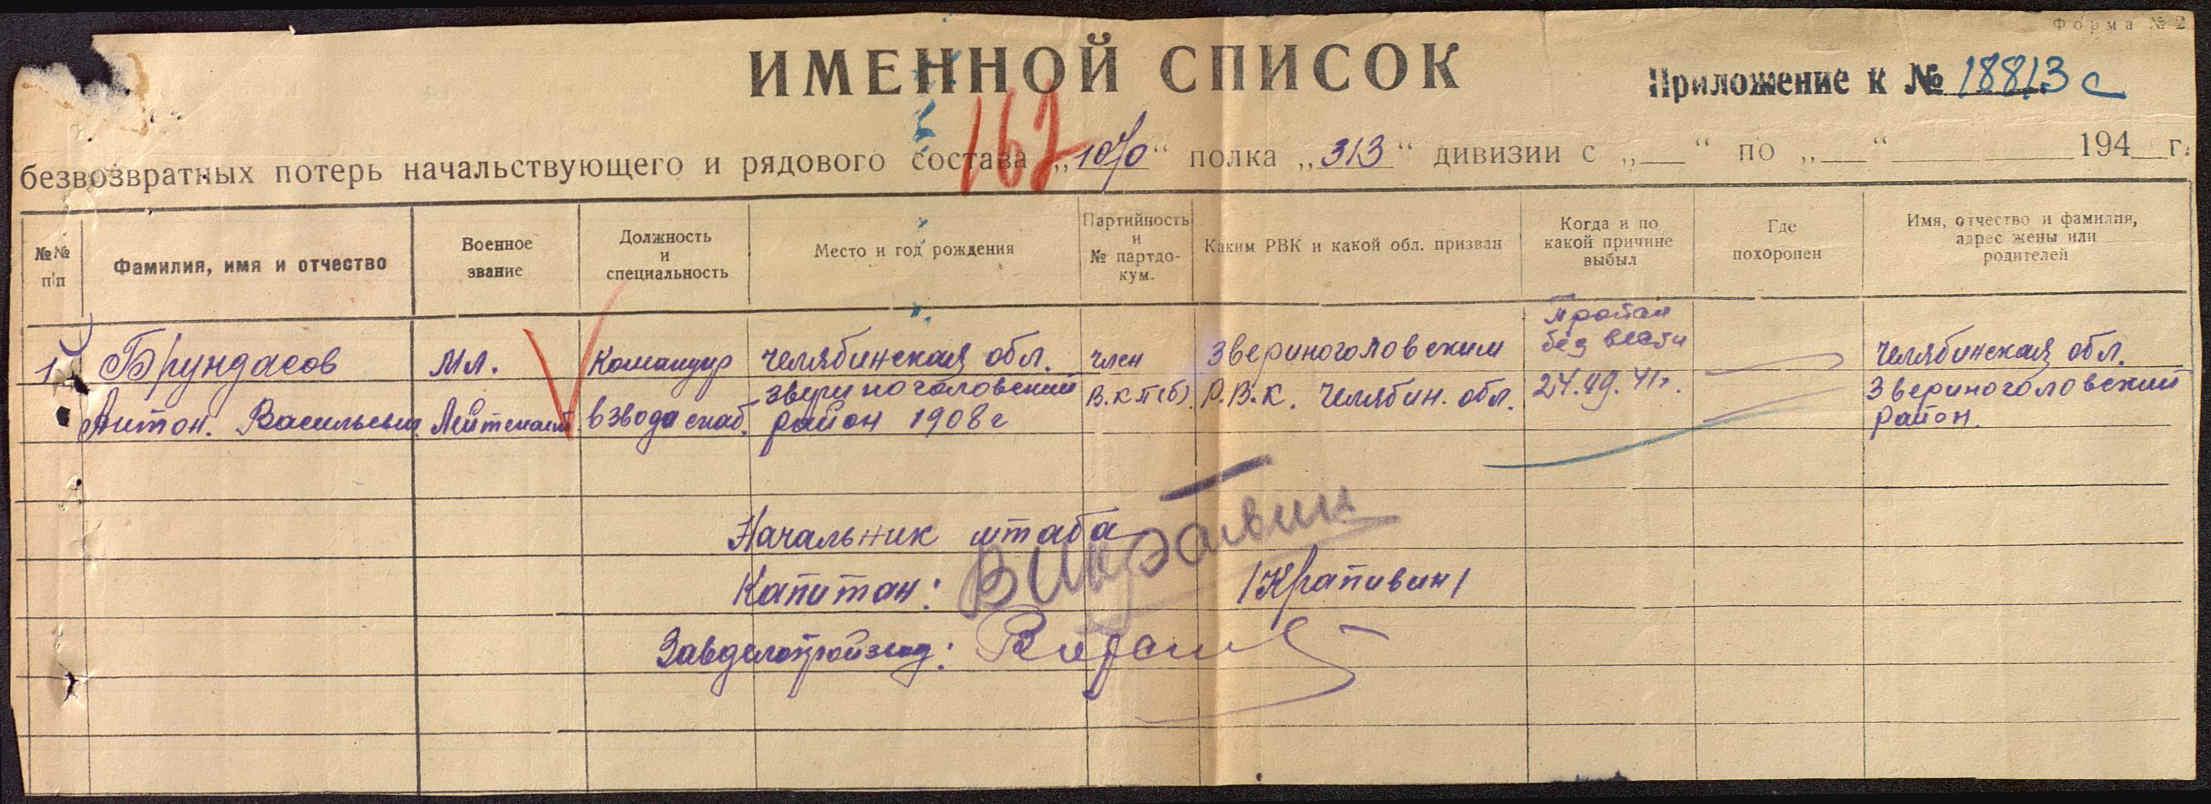 Форма № 2
ИМЕННОЙ СПИСОК
Приложение к № 18813 с
162
безвозвратных потерь начальствующего и рядового состава „1070“ полка „313“ дивизии с „__“ по „__“ ________ 194__г.
№№ п/п
Фамилия, имя и отчество
Военное звание
Должность и специальность
Место и год рождения
Партийность и № партдо-кум.
Каким РВК и какой обл. призван
Когда и по какой причине выбыл
Где похоронен
Имя, отчество и фамилия, адрес жены или родителей
1 Брундасов Антон. Васильевич
мл. Лейтенант
Командир взвода снаб.
Челябинская обл. Звериноголовский район 1908 г
член В.К.П(б).
Звериноголовским Р.В.К. Челябин. обл.
Пропал без вести 24.09.41г.
Челябинская обл. Звериноголовский район.
Начальник штаба
Капитан: /Крапивин/
Завделопроизвод: